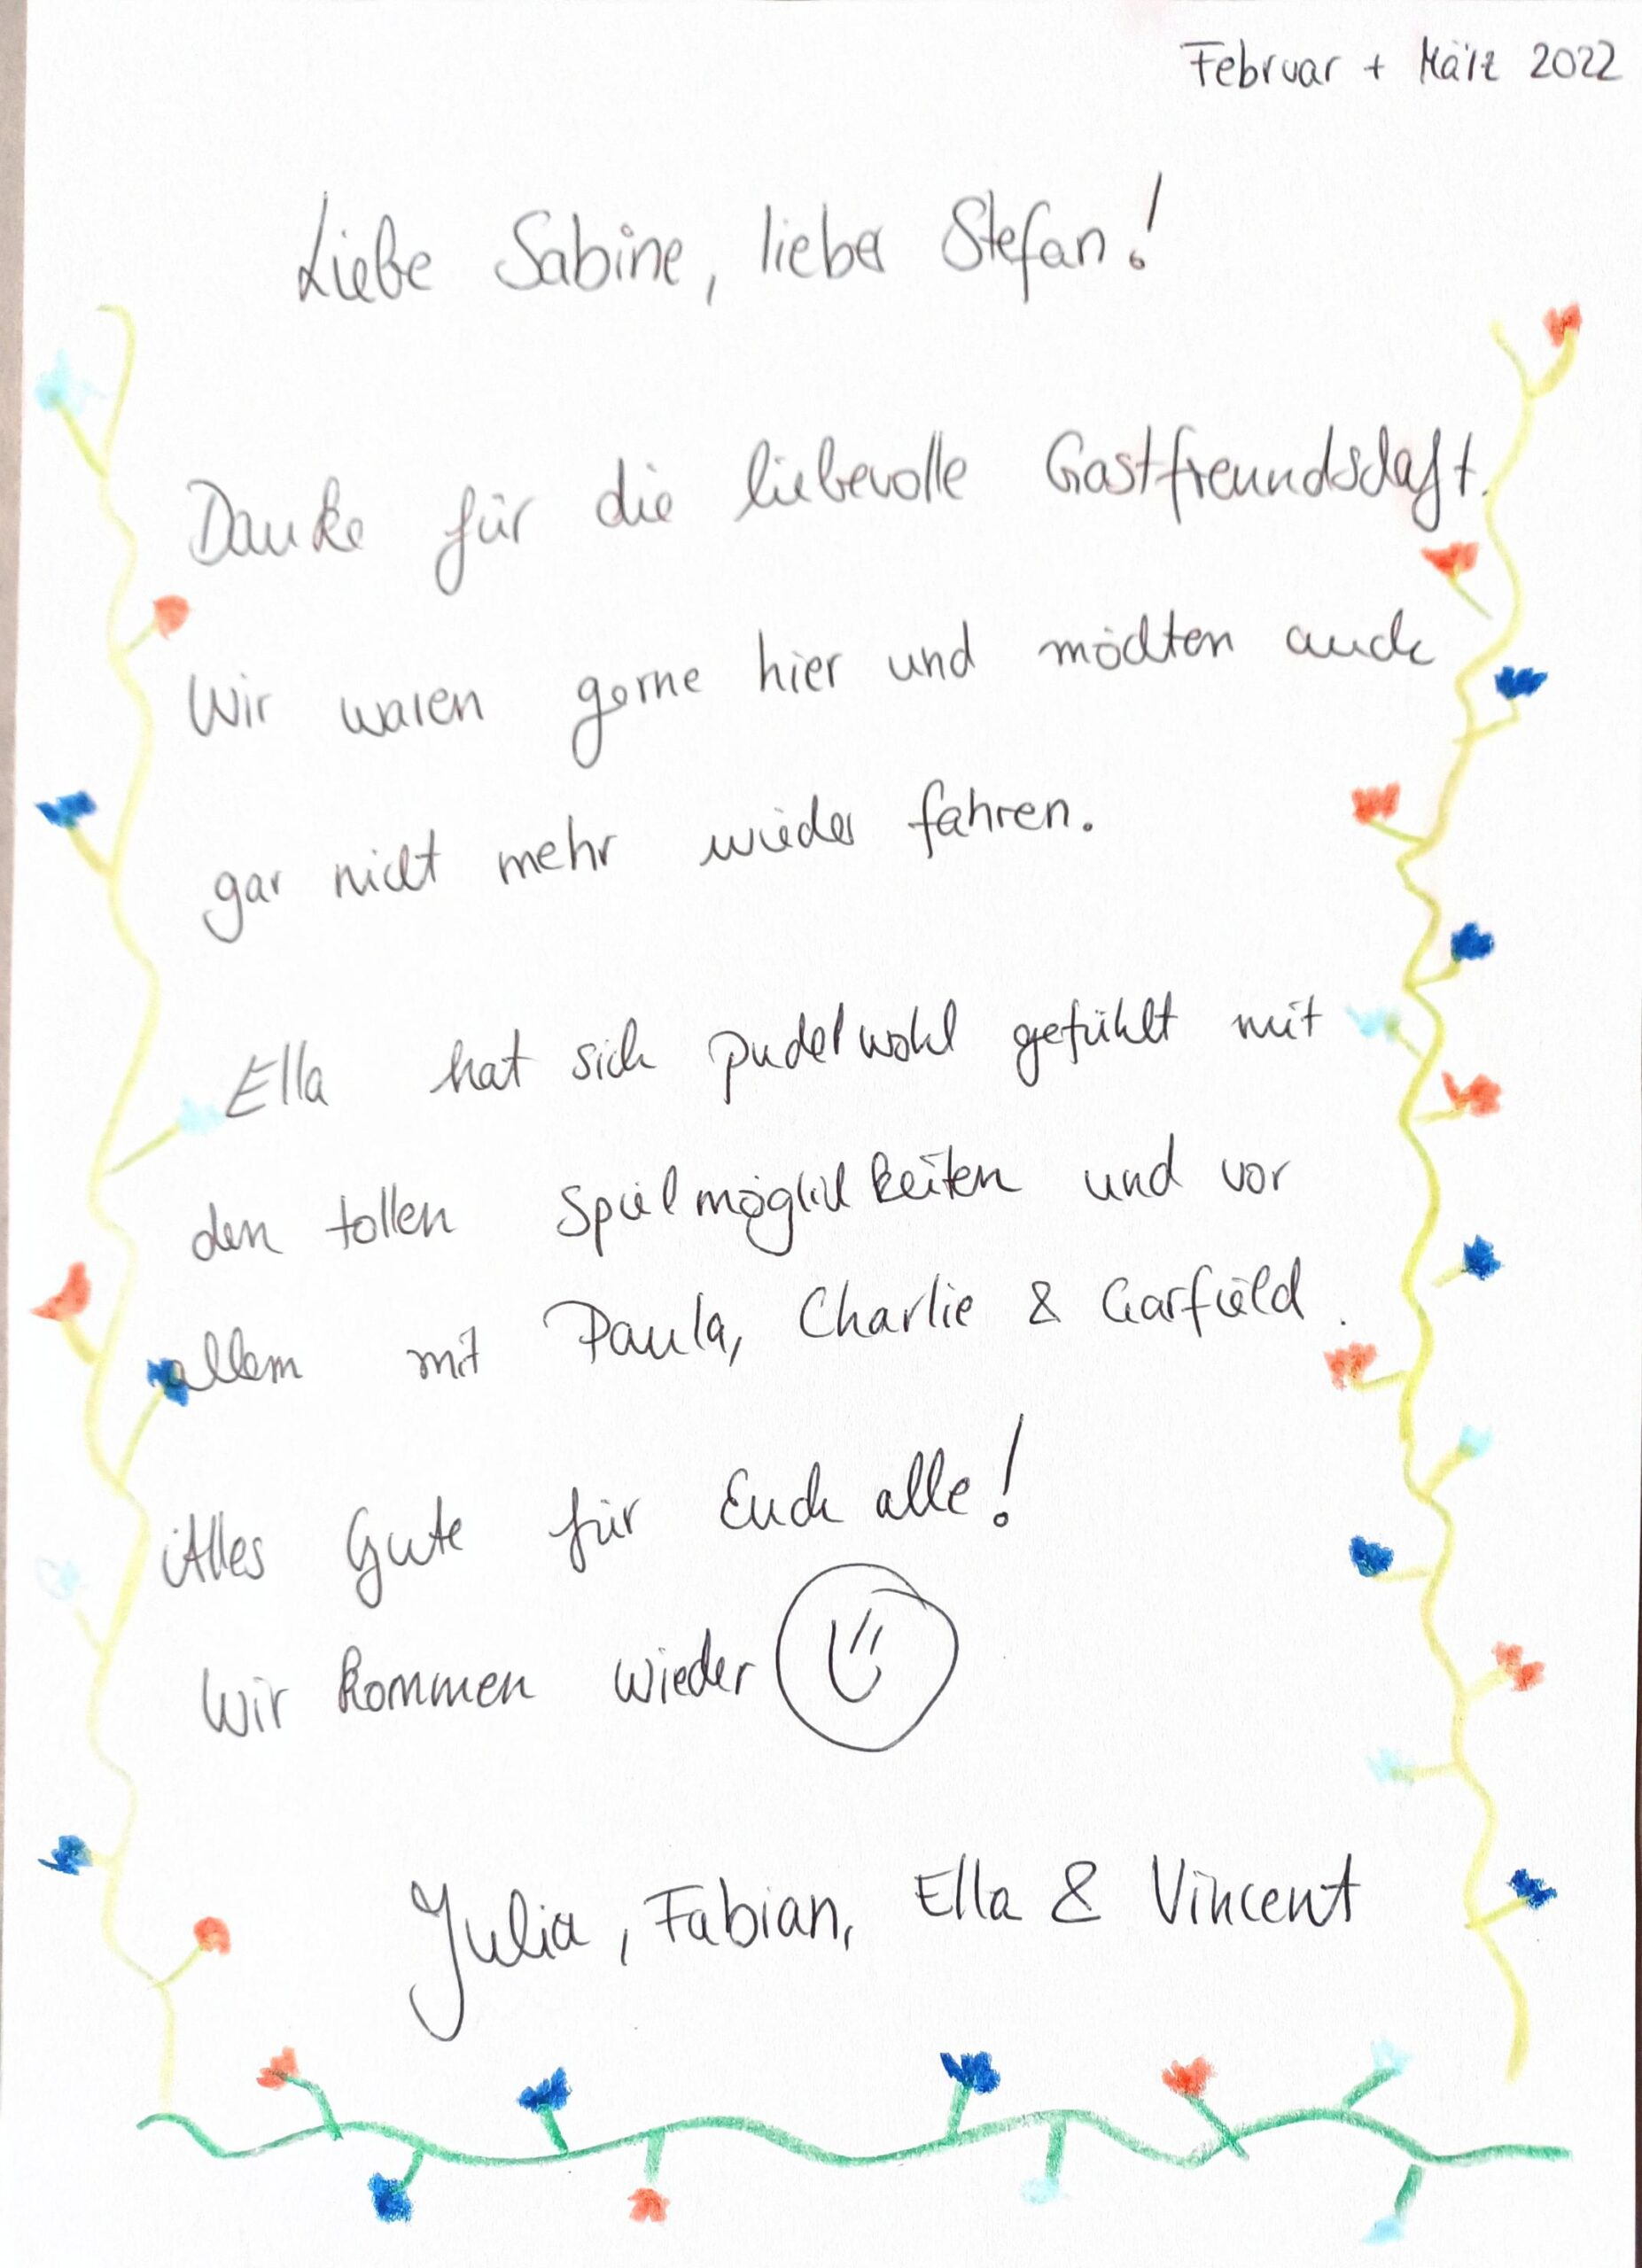 Februar + März 2022
Liebe Sabine, lieber Stefan!
Danke für die liebevolle Gastfreundschaft.
Wir waren gerne hier und möchten auch
gar nicht mehr wieder fahren.
Ella hat sich pudelwohl gefühlt mit
den tollen Spielmöglichkeiten und vor
allem mit Paula, Charlie & Garfield.
Alles Gute für Euch alle!
Wir kommen wieder
Julia, Fabian, Ella & Vincent